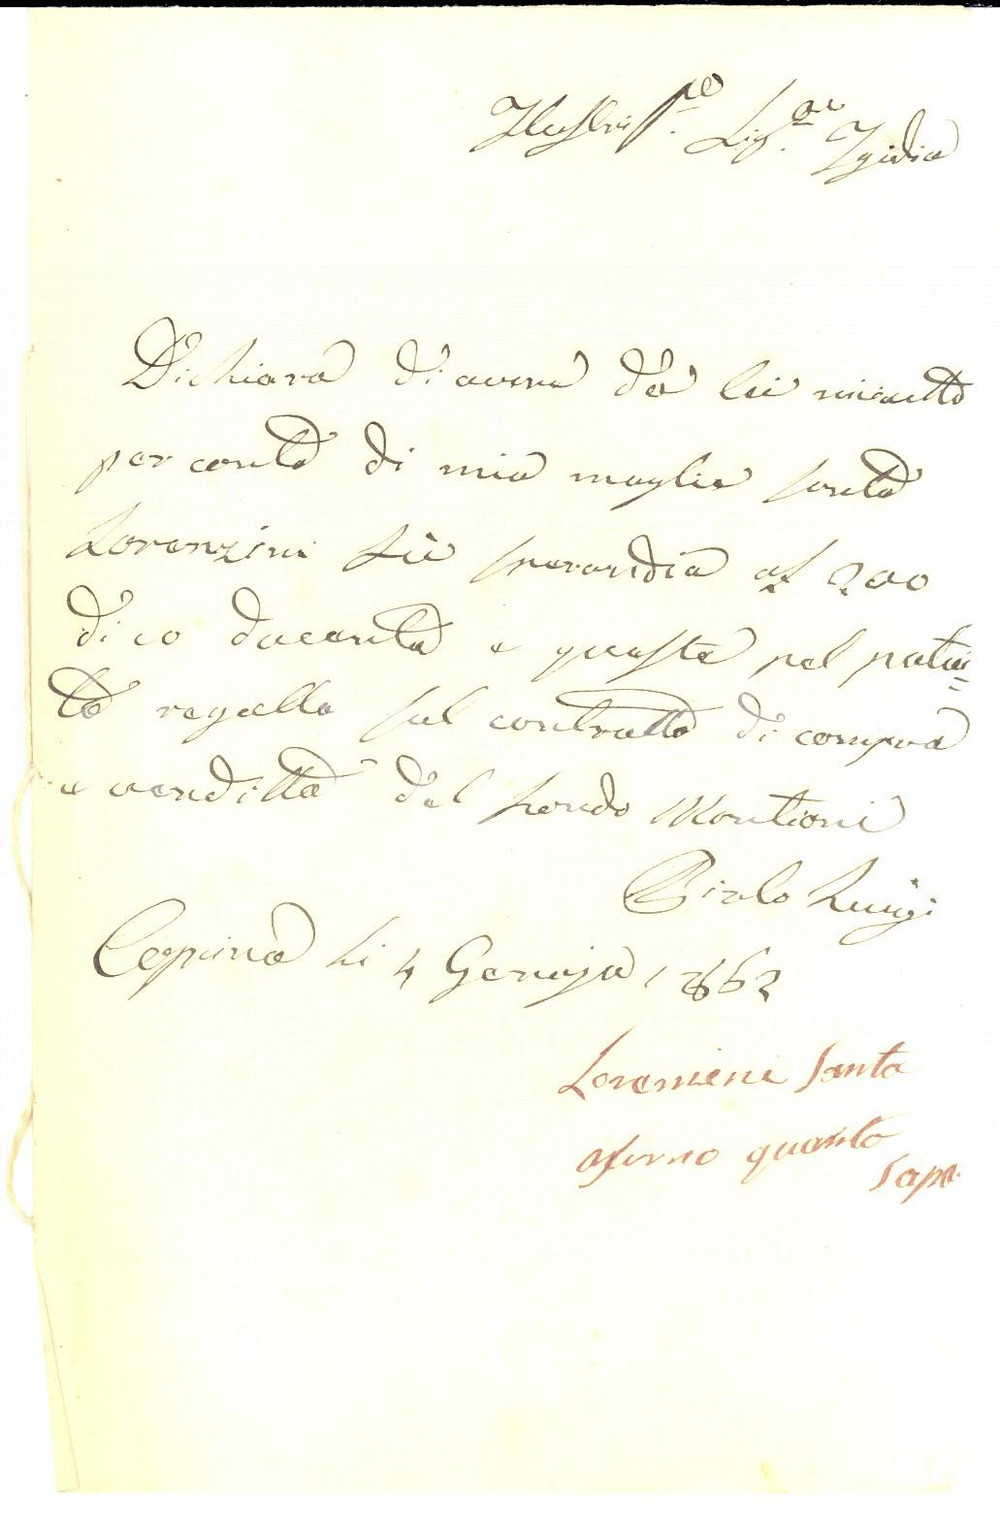 Illustriss.mo Sig.re Igidio
Dichiaro di avere da lei ricevuto
per conto di mia moglie Santa
Lorenzini fù Sperandia af 200
dico ducento e queste pel patui=
to regallo sul contratto di compra
e venditta del fondo Montioni
Pirlo Luigi
Cepina li 4 Genajo 1862
Lorensini Santa
afermo quanto
sopra